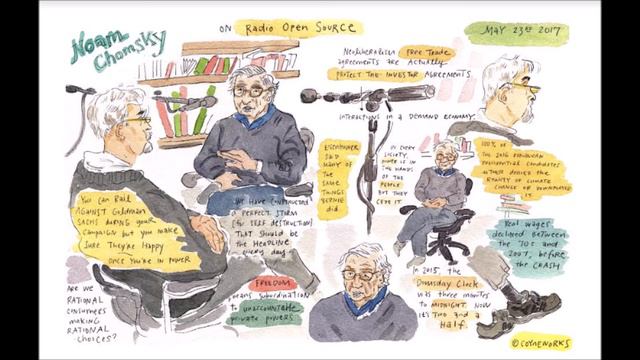 Noam
Chomsky
ON Radio Open Source
MAY 23rd 2017
Neoliberalism FREE TRADE
agreements are actually
PROTECT THE INVESTOR AGREEMENTS.
INTERACTIONS IN A DEMAND ECONOMY
Eisenhower
said
many of
the
same
things
Bernie
did.
IN EVERY
SOCIETY,
POWER IS IN
THE HANDS
OF THE
PEOPLE
BUT THEY
CEDE IT
100% OF
THE 2016 REPUBLICAN
PRESIDENTIAL CANDIDATES
EITHER DENIED THE
REALITY OF CLIMATE
CHANGE OR DOWNPLAYED
IT.
You can Rail
AGAINST Goldman
SACHS DURING your
CAMPAIGN but you make
Sure They're Happy
once you're in power
WE HAVE CONSTRUCTED
A PERFECT STORM
(for SELF DESTRUCTION)
THAT should be
the HEADLINE
every day.
Real wages
declined between
the '70s and
2007, before
the CRASH
FREEDOM
means subordination
to unaccountable
private powers
In 2015, the
Doomsday Clock
was three minutes
to MIDNIGHT. NOW
it's TWO and a
Half.
ARE WE
RATIONAL
CONSUMERS
MAKING
RATIONAL
CHOICES?
© COYNEWORKS